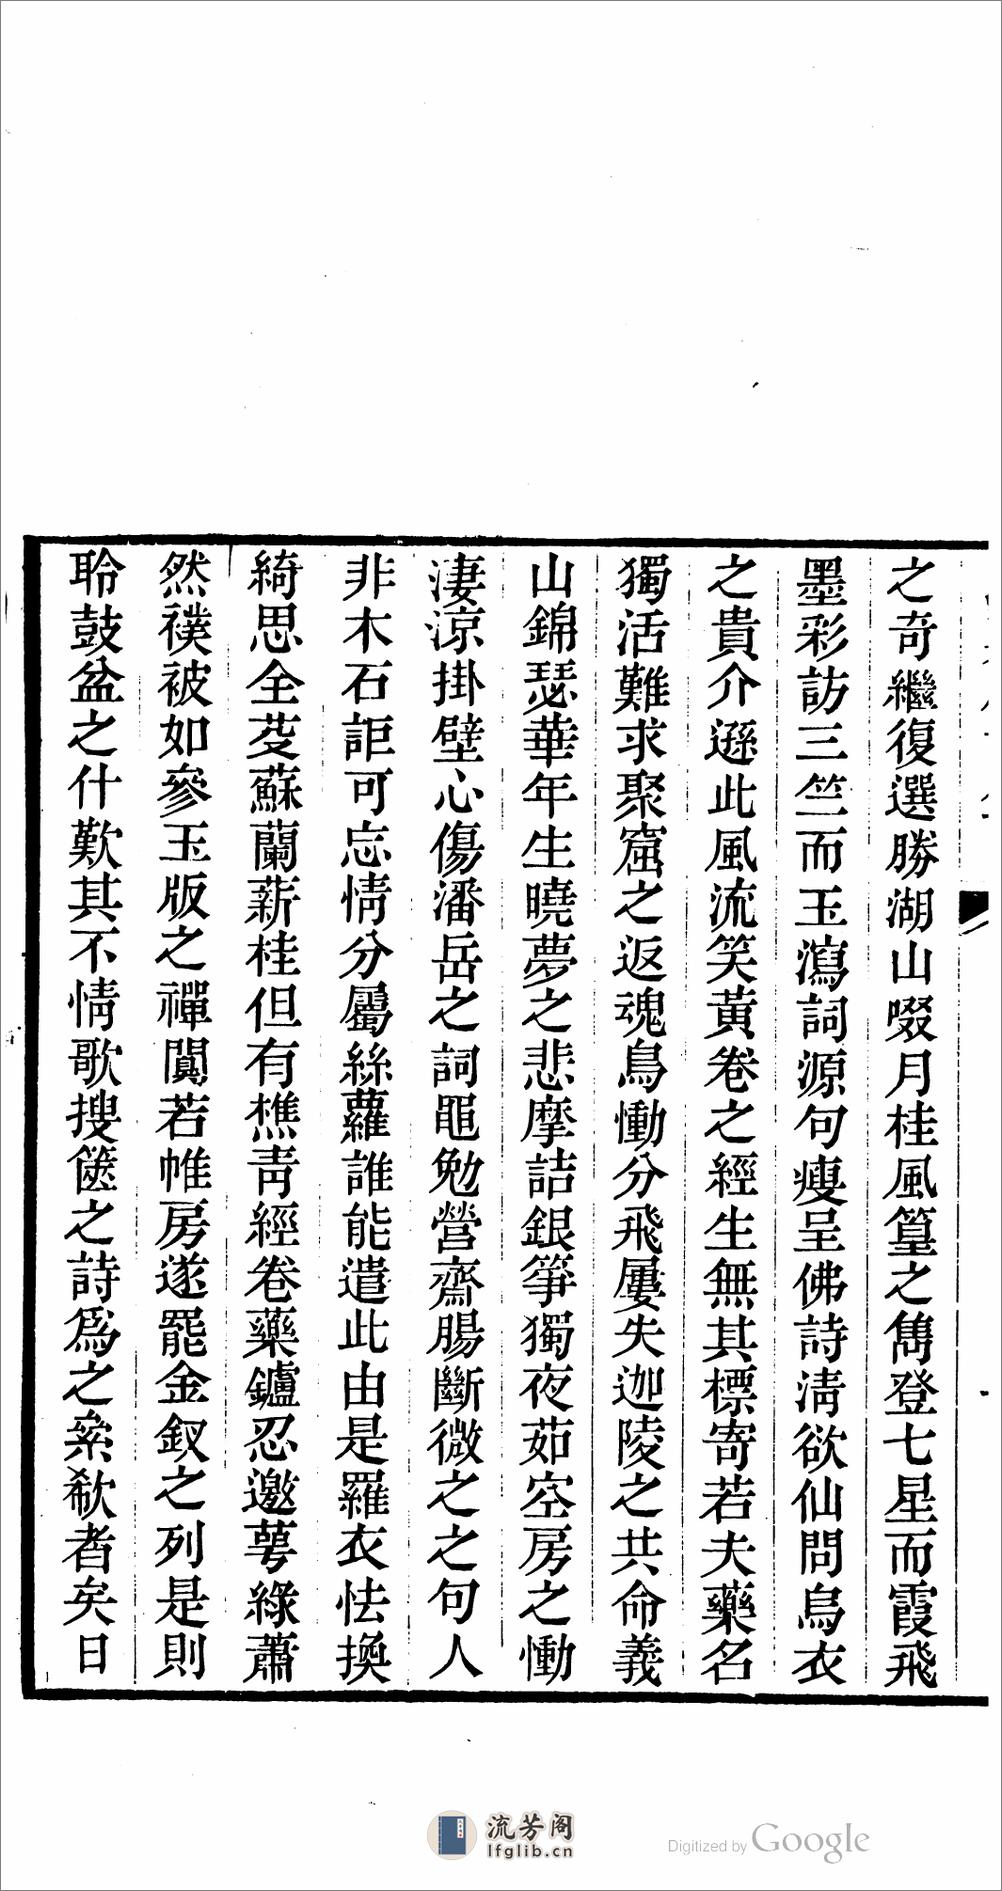 之奇繼復選勝湖山啜月桂風篁之雋登七星而霞飛
墨彩訪三竺而玉瀉詞源句瘦呈佛詩清欲仙問烏衣
之貴介遜此風流笑黃卷之經生無其標寄若夫藥名
獨活難求聚窟之返魂鳥慟分飛屢失迦陵之共命義
山錦瑟華年生曉夢之悲摩詰銀箏獨夜茹空房之慟
淒涼掛壁心傷潘岳之詞黽勉營齋腸斷微之之句人
非木石詎可忘情分屬絲蘿誰能遣此由是羅衣怯換
綺思全芟蘇蘭薪桂但有樵青經卷藥鑪忍邀萼綠蕭
然襆被如參玉版之禪闃若帷房遂罷金釵之列是則
聆鼓盆之什歎其不情歌搜篋之詩爲之欷者矣日
流芳阁
lfglib.cn
Digitized by Google